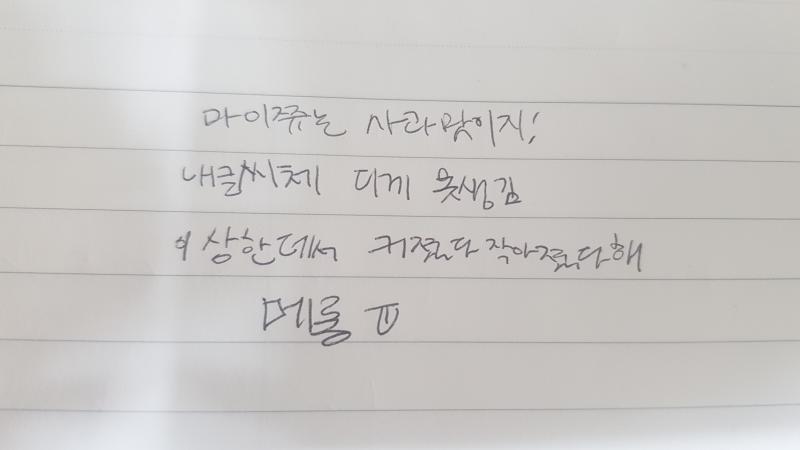 마이쮸는 사과맛이지!
내글씨체 디게 못생김
이상한데서 커졌다 작아졌다해
메롱